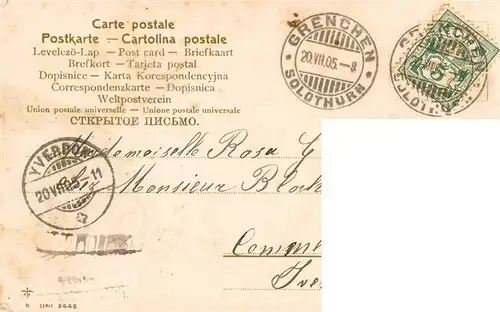 Carte postale
Postkarte — Cartolina postale
Levelező-Lap — Post card — Briefkaart
Brefkort — Tarjeta postal
Dopisnice — Karta Korespondencyjna
Correspondenzkarte — Dopisnica
Weltpostverein
Union postale universelle — Unione postale universale
ОТКРЫТОЕ ПИСЬМО.
GRENCHEN
20.VII.05.-8
SOLOTHURN
GRENCHEN
SOLOTHURN
YVERDON
20 VII 05.-11
Mademoiselle Rosa G
chez Monsieur
SERIE 3665